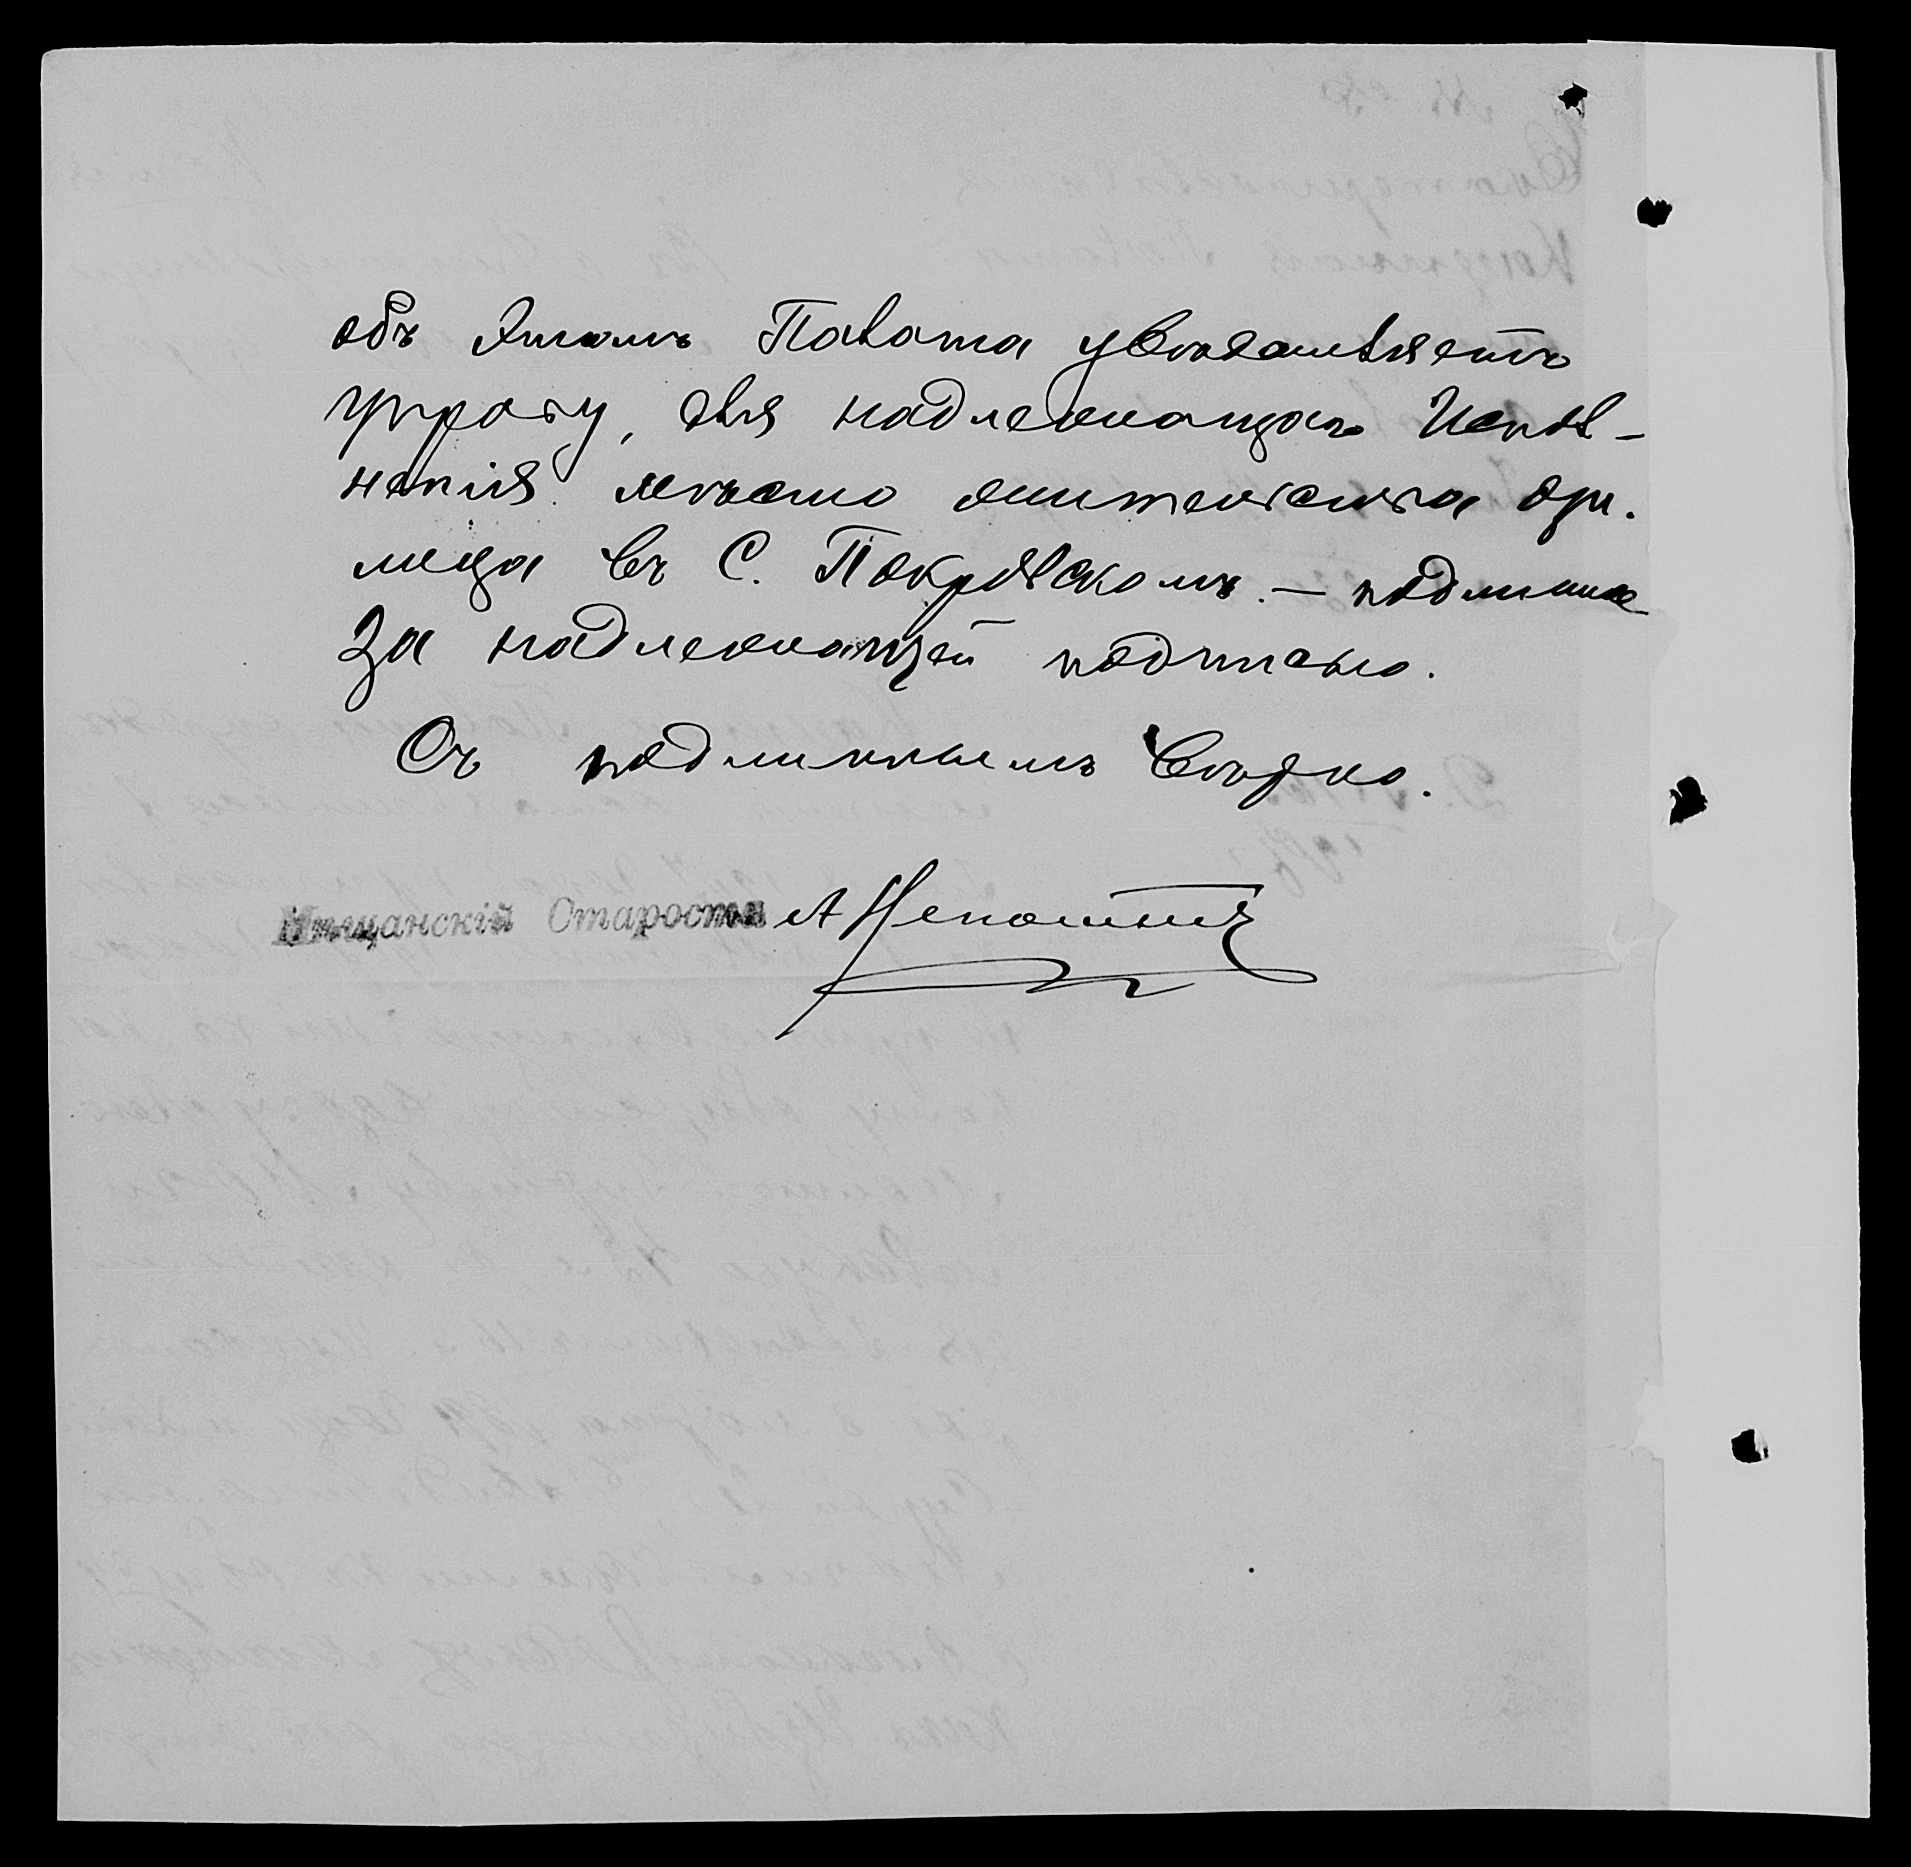 объ этомъ Палата увѣдомляетъ
Управу, для надлежащаго испол-
ненія. мѣсто жительства
лица въ С. Покровскомъ. — подлинное
за надлежащей подписью.
Съ подлиннымъ вѣрно.
Мѣщанскій Староста